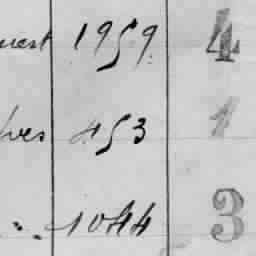 uest 1959 4
ves 453 1
" 1044 3